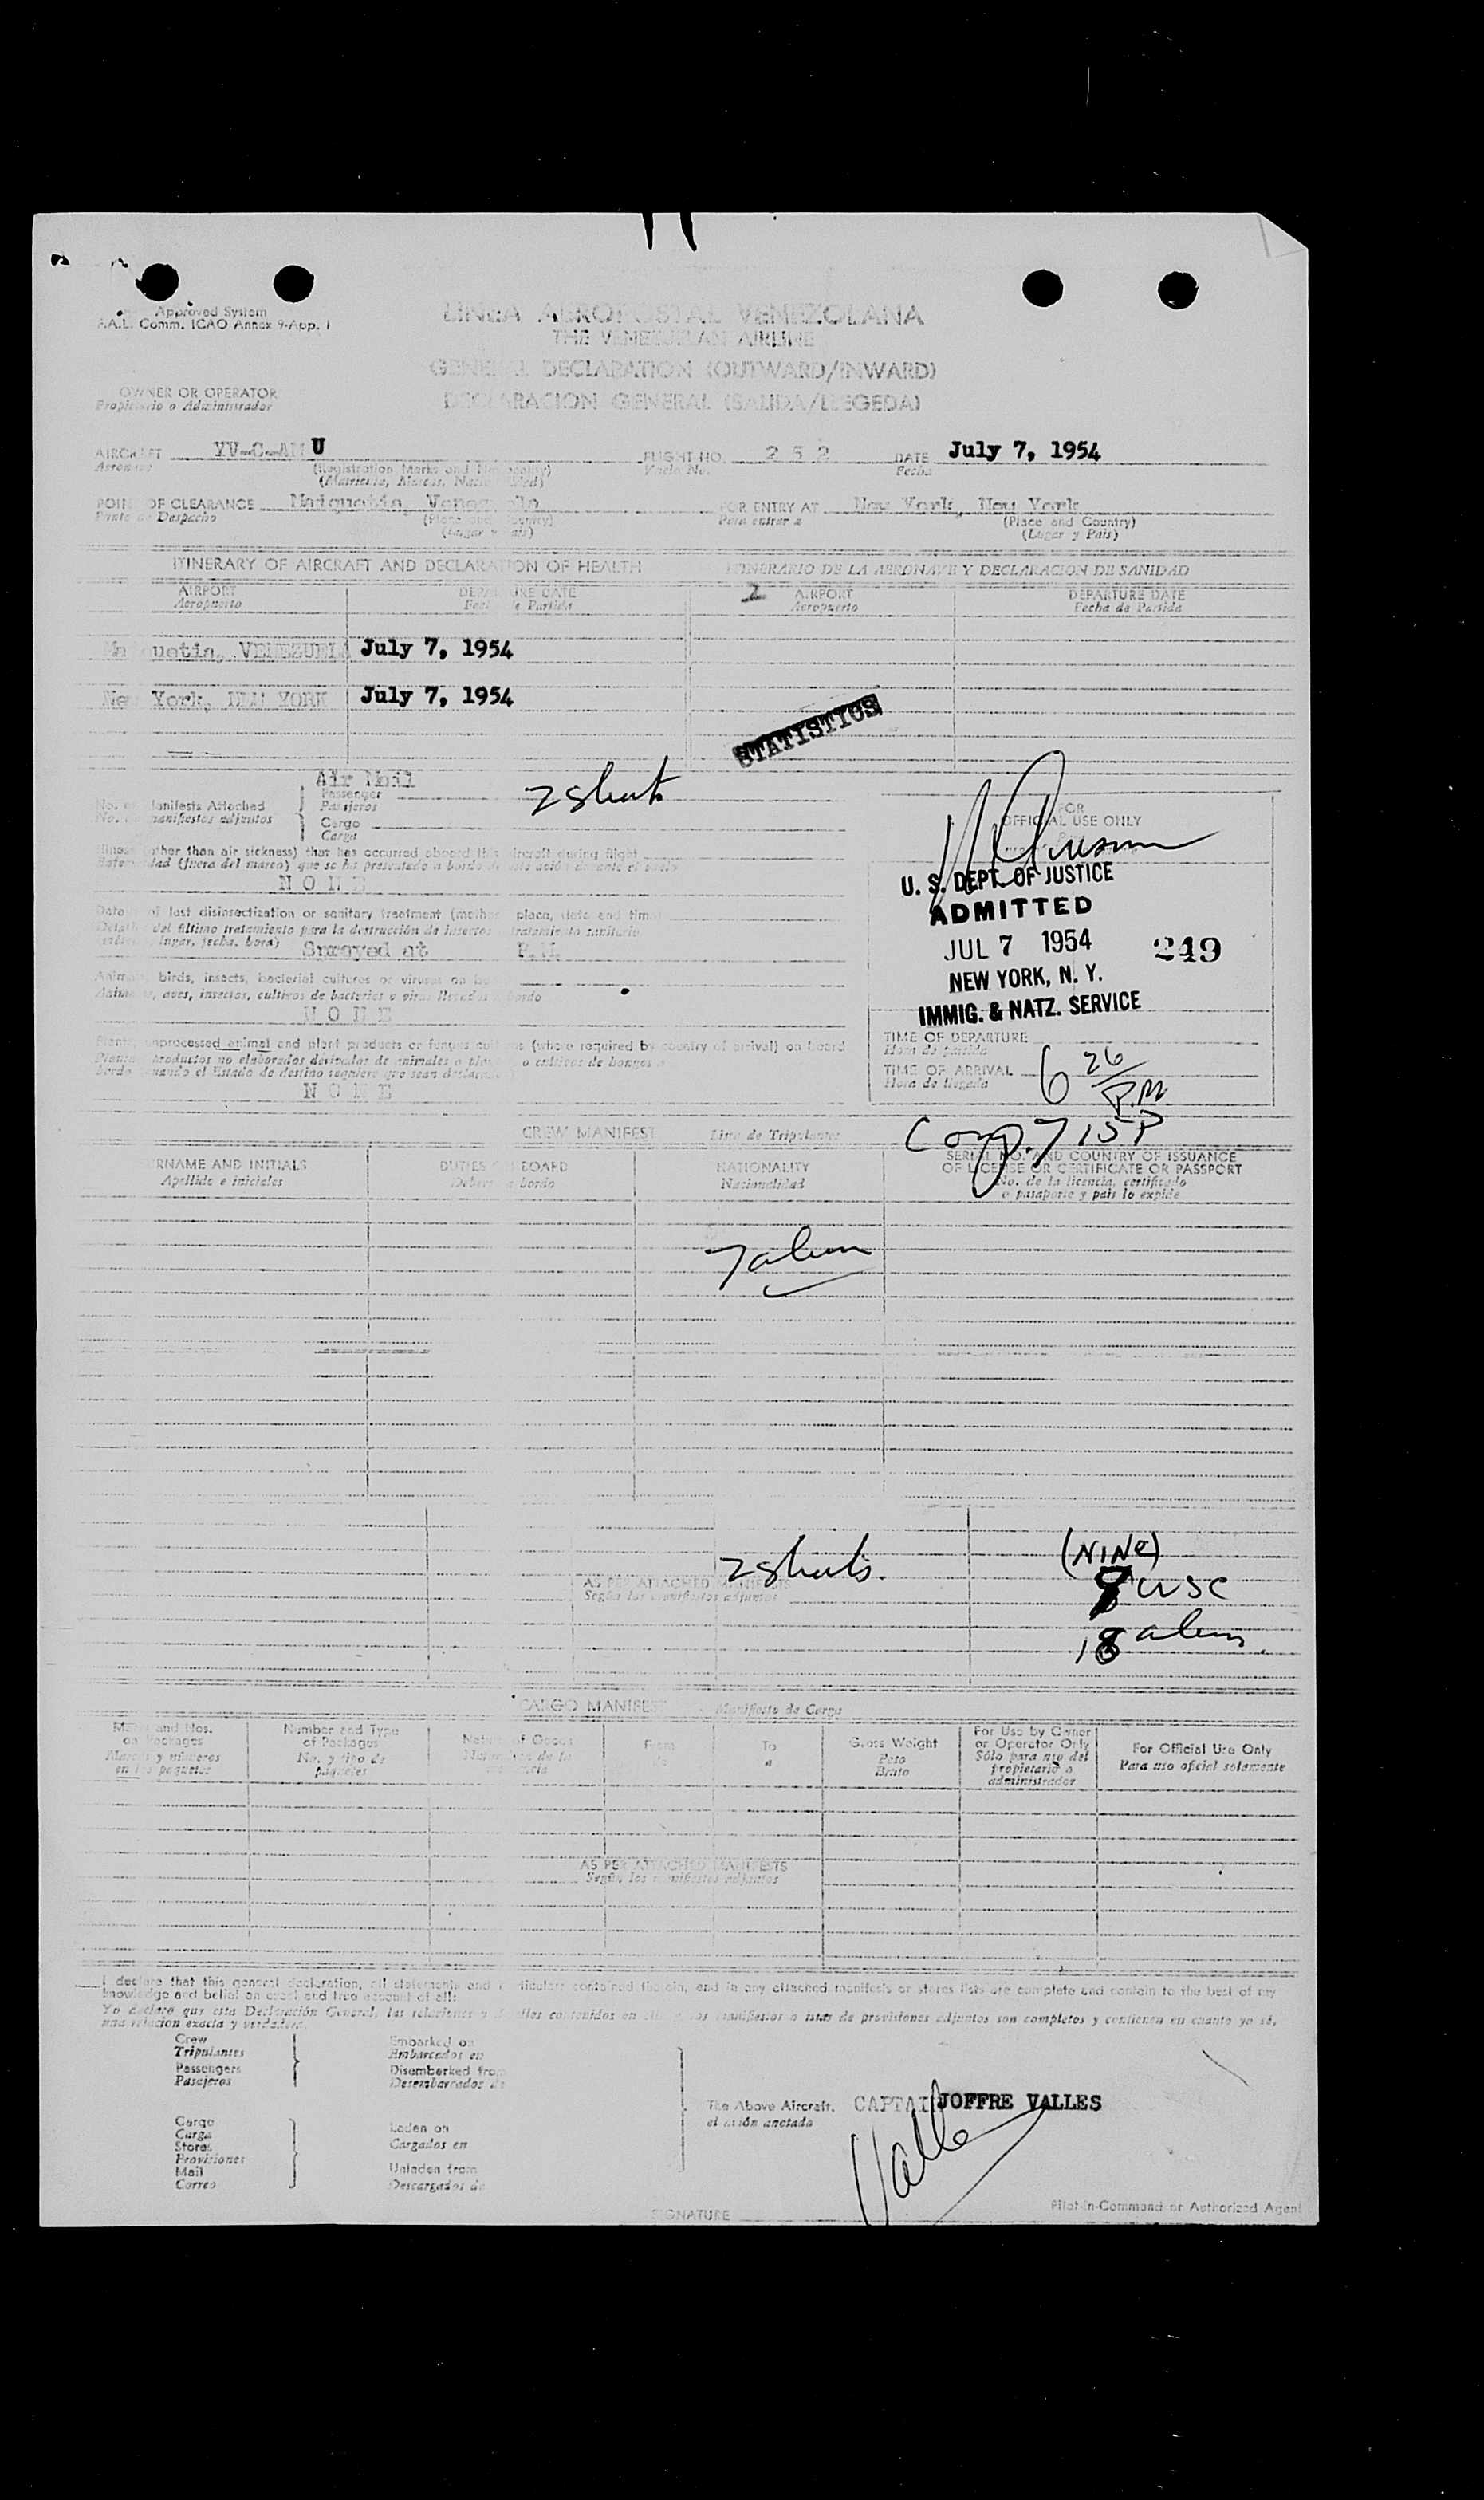 Approved System
F.A.L. Comm. ICAO Annex 9-App. I
LINEA AEROPOSTAL VENEZOLANA
THE VENEZUELAN AIRLINE
GENERAL DECLARATION (OUTWARD/INWARD)
DECLARACION GENERAL (SALIDA/LLEGEDA)
OWNER OR OPERATOR
Propietario o Administrador
AIRCRAFT YV-C-AMU FLIGHT NO. 252 DATE July 7, 1954
Aeronave (Registration Marks and Nationality) Vuelo No. Fecha
POINT OF CLEARANCE Maiquetia, Venezuela FOR ENTRY AT New York, New York
Punto de Despacho (Place and Country) Para entrar a (Place and Country)
(Lugar y Pais) (Lugar y Pais)
ITINERARY OF AIRCRAFT AND DECLARATION OF HEALTH ITINERARIO DE LA AERONAVE Y DECLARACION DE SANIDAD
AIRPORT DEPARTURE DATE 2 AIRPORT DEPARTURE DATE
Aeropuerto Fecha de Partida Aeropuerto Fecha de Partida
Maiquetia, VENEZUELA July 7, 1954
New York, NEW YORK July 7, 1954
STATISTICS
Air Mail
Passenger 2 sheets
No. of Manifests Attached Pasajeros
No. de manifiestos adjuntos Cargo
Carga
FOR
OFFICIAL USE ONLY
Illness (other than air sickness) that has occurred aboard this aircraft during flight
NONE
U. S. DEPT. OF JUSTICE
ADMITTED
JUL 7 1954 249
NEW YORK, N. Y.
IMMIG. & NATZ. SERVICE
Details of last disinsectization or sanitary treatment (method, place, date and time)
Detalle del último tratamiento para la destrucción de insectos o tratamiento sanitario
indicar lugar, fecha, hora) Sprayed at P.M.
Animals, birds, insects, bacterial cultures or viruses on board
Animales, aves, insectos, cultivos de bacterias o virus llevados a bordo
NONE
Plants, unprocessed animal and plant products or fungus cultures (where required by country of arrival) on board
NONE
TIME OF DEPARTURE
Hora de partida
TIME OF ARRIVAL 6 26 P.M.
Hora de llegada
Comp. 7 15 P
CREW MANIFEST Lista de Tripulantes
SURNAME AND INITIALS DUTIES ON BOARD NATIONALITY SERIAL NO. AND COUNTRY OF ISSUANCE
OF LICENSE OR CERTIFICATE OR PASSPORT
Apellido e iniciales Deberes a bordo Nacionalidad No. de la licencia, certificado
o pasaporte y pais lo expide
7 alien
2 sheets.
AS PER ATTACHED MANIFESTS
Según los manifiestos adjuntos
(NINE)
9 USC
18 aliens.
CARGO MANIFEST Manifiesto de Carga
Marks and Nos. Number and Type Nature of Goods From To Gross Weight For Use by Owner For Official Use Only
on Packages of Packages or Operator Only
Marcas y números No. y tipo de a Peso Sólo para uso del Para uso oficial solamente
en los paquetes paquetes Bruto propietario o
administrador
AS PER ATTACHED MANIFESTS
Según los manifiestos adjuntos
I declare that this general declaration, all statements and particulars contained therein, and in any attached manifests or stores lists are complete and contain to the best of my
knowledge and belief an exact and true account of all:
Crew Embarked on
Tripulantes Embarcados en
Passengers Disembarked from
Pasajeros Desembarcados de
The Above Aircraft. CAPTAIN JOFFRE VALLES
el avión anotado
Valles
Cargo Laden on
Carga Cargados en
Stores
Provisiones
Mail Unladen from
Correo Descargados de
SIGNATURE Pilot-in-Command or Authorized Agent